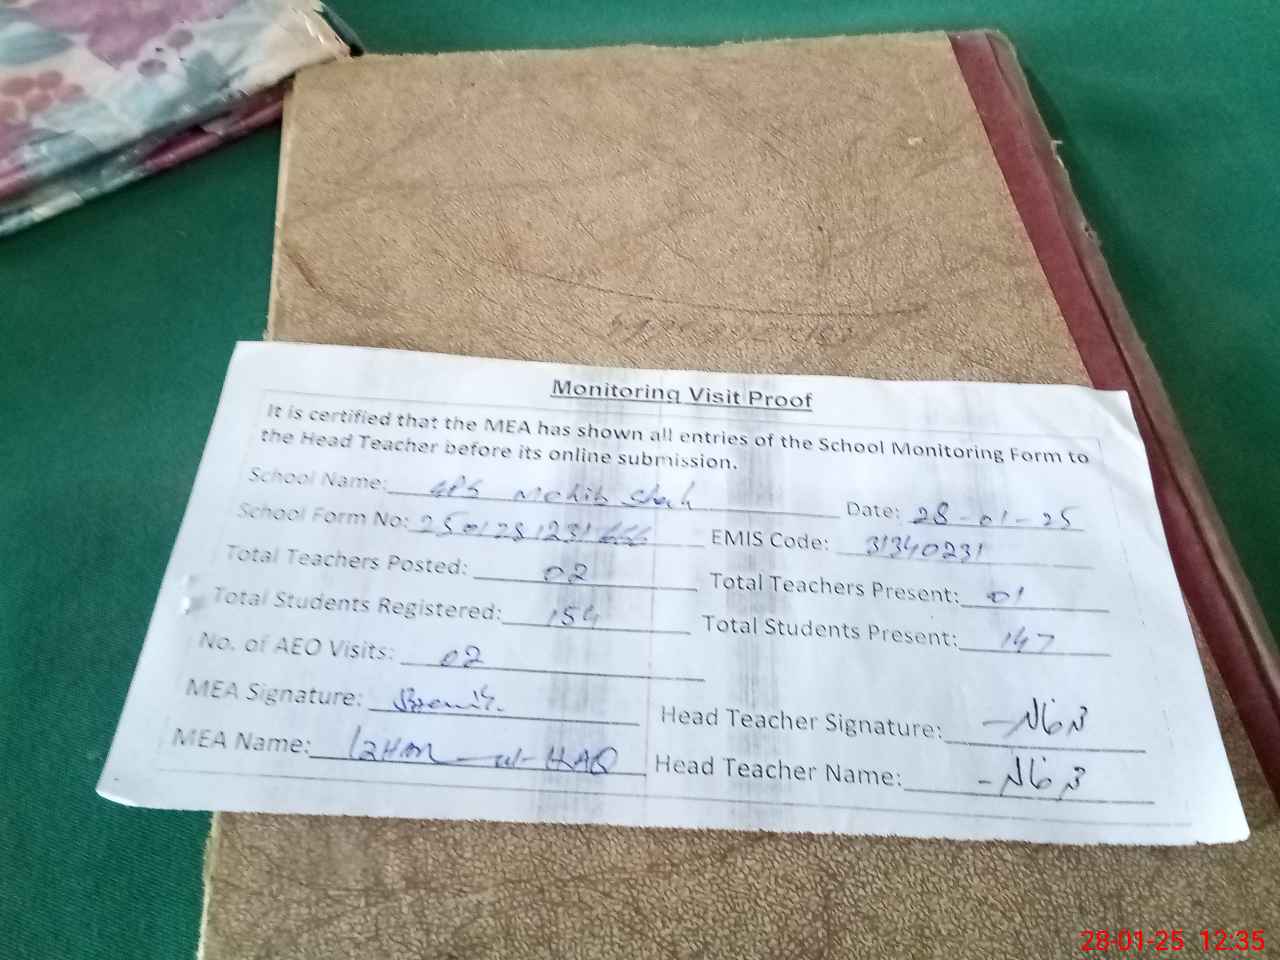 Monitoring Visit Proof
It is certified that the MEA has shown all entries of the School Monitoring Form to
the Head Teacher before its online submission.
School Name: GPS Mehib Shah Date: 28-01-25
School Form No: 2501281231666 EMIS Code: 31340231
Total Teachers Posted: 02 Total Teachers Present: 01
Total Students Registered: 154 Total Students Present: 147
No. of AEO Visits: 02
MEA Signature: Head Teacher Signature:
MEA Name: IZHAR-ul-HAQ Head Teacher Name:
28-01-25 12:35